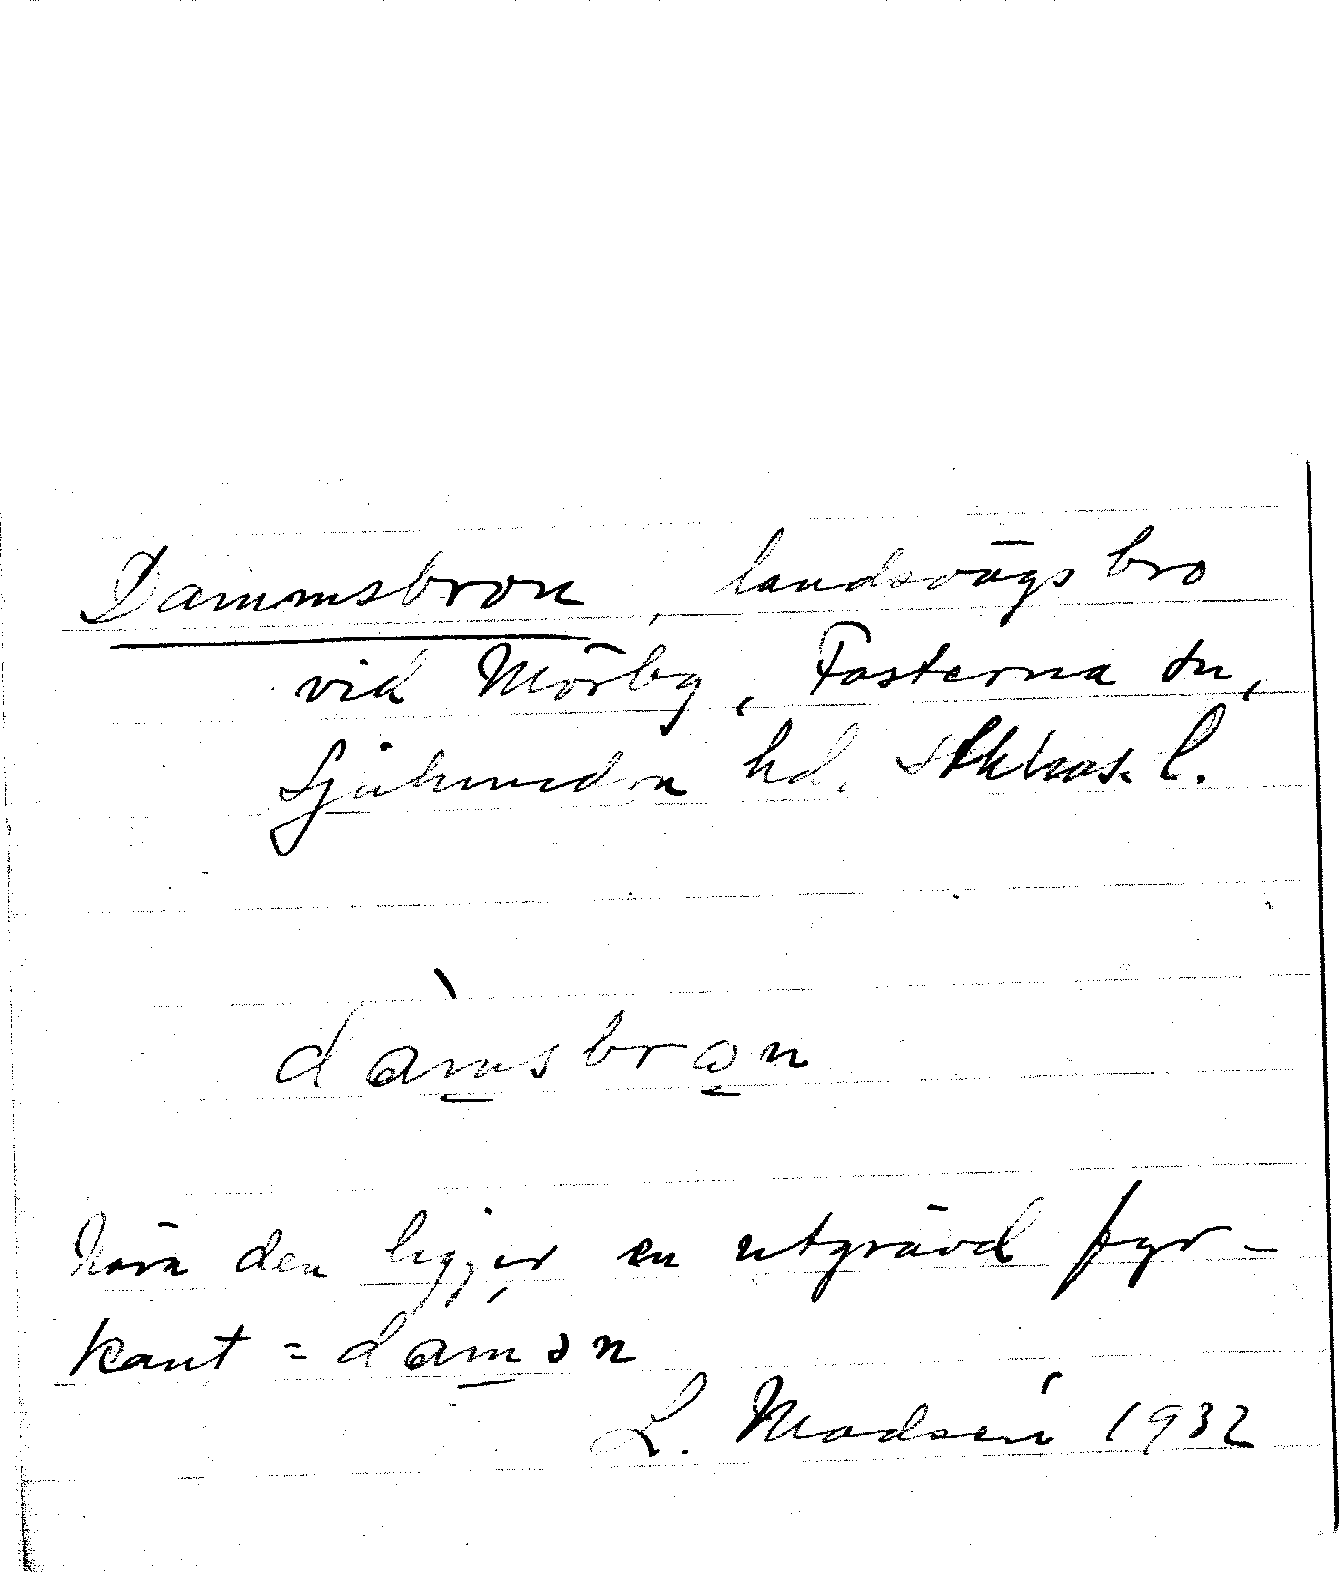 Dammsbron, landsvägsbro
vid Mörby, Fasterna sn,
Sjuhundra hd. Sthlms. l.
dàmsbron
Nära den ligger en utgrävd fyr-
kant = damən
L. Madsén 1932